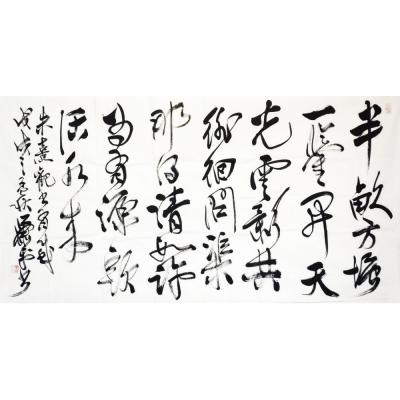 半畝方塘
一鑒開天
光雲影共
徘徊問渠
那得清如許
為有源頭
活水來
朱熹觀書有感
戊戌之
書